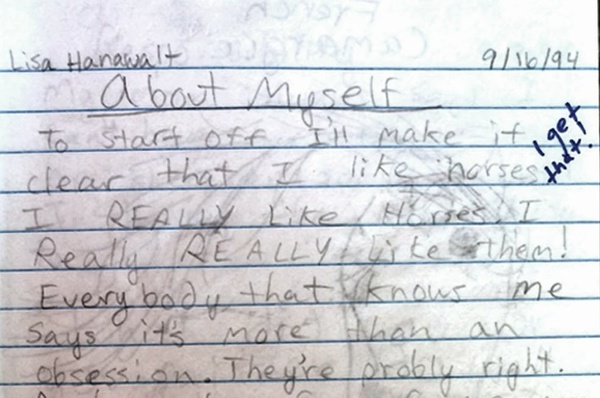 Lisa Hanawalt 9/16/94
About Myself
To start off I'll make it
I get that!
clear that I like horses.
I REALLY Like Horses. I
Really REALLY Like them!
Everybody that knows me
says it's more than an
obsession. They're probly right.